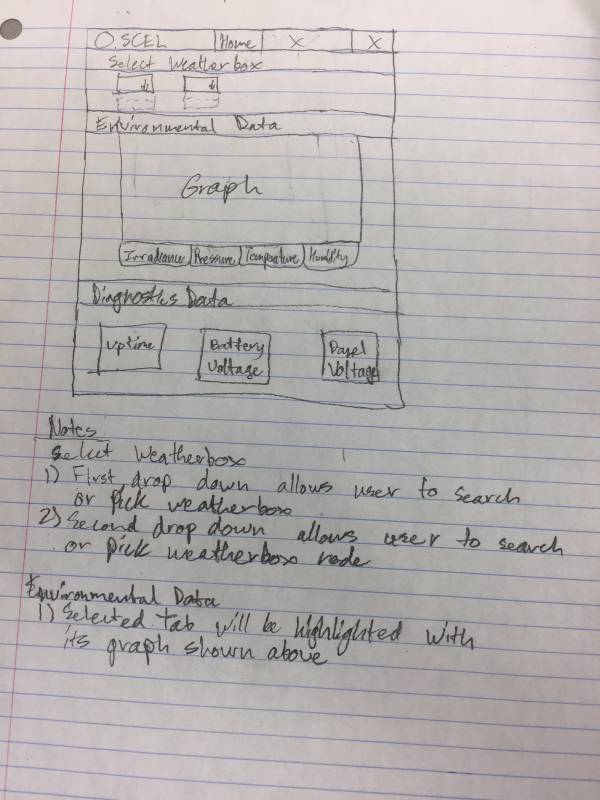 O.SCEL Home X X
Select Weatherbox
Environmental Data
Graph
Irradiance Pressure Temperature Humidity
Diagnostics Data
Uptime Battery Panel
Voltage Voltage
Notes
Select Weatherbox
1) First drop down allows user to search
or Pick weatherbox
2) Second drop down allows user to search
or pick weatherbox node
Environmental Data
1) Selected tab will be highlighted with
its graph shown above